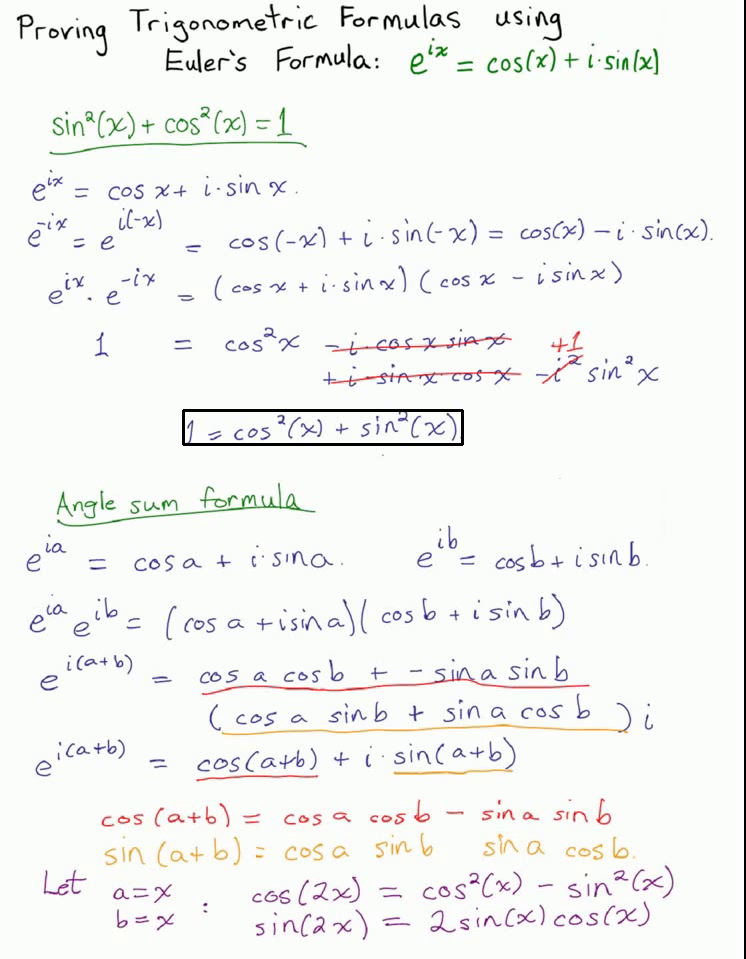 Proving Trigonometric Formulas using
Euler's Formula: e^{ix} = cos(x) + i·sin(x)
sin²(x) + cos²(x) = 1
e^{ix} = cos x + i·sin x.
e^{-ix} = e^{i(-x)} = cos(-x) + i·sin(-x) = cos(x) - i·sin(x).
e^{ix}·e^{-ix} = (cos x + i·sin x)(cos x - i sin x)
1 = cos²x - i·cos x sin x +1
+ i·sin x cos x - i² sin²x
1 = cos²(x) + sin²(x)
Angle sum formula
e^{ia} = cos a + i·sin a. e^{ib} = cos b + i sin b.
e^{ia} e^{ib} = (cos a + i sin a)(cos b + i sin b)
e^{i(a+b)} = cos a cos b + - sin a sin b
(cos a sin b + sin a cos b) i
e^{i(a+b)} = cos(a+b) + i·sin(a+b)
cos(a+b) = cos a cos b - sin a sin b
sin(a+b) = cos a sin b sin a cos b.
Let a=x : cos(2x) = cos²(x) - sin²(x)
b=x sin(2x) = 2 sin(x) cos(x)